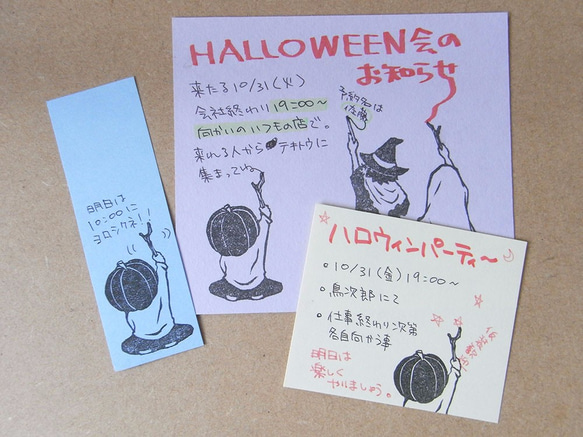 HALLOWEEN会の
お知らせ
来たる10/31(火)
会社終わり19:00〜
向かいのいつもの店で。
来れる人からテキトウに
集まってね
予約名は
佐藤
明日は
10:00に
ヨロシクネ!!
ハロウィンパーティ〜
・10/31(金)19:00〜
・鳥次郎にて
・仕事終わり次第
各自向かう事
明日は
楽しく
やりましょう。